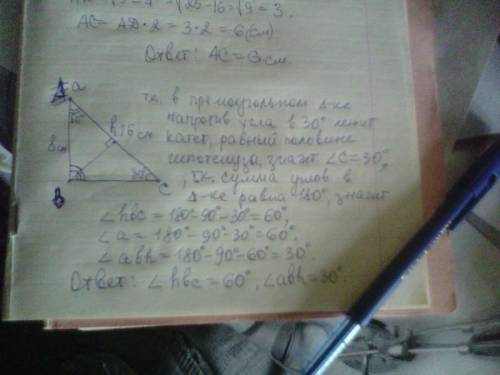 = √25-16 = √9 = 3.
AC = AD · 2 = 3 · 2 = 6 (см).
Ответ: AC = 6 см.
a
h 16 см
8 см
B
C
30°
т.к. в прямоугольном Δ-ке
напротив угла в 30° лежит
катет, равный половине
гипотенузы, значит ∠C = 30°,
, т.к. сумма углов в
Δ-ке равна 180°, значит
∠hbc = 180°-90°-30° = 60°,
∠a = 180°-90°-30° = 60°.
∠abh = 180°-90°-60° = 30°.
Ответ: ∠hbc = 60°, ∠abh = 30°.